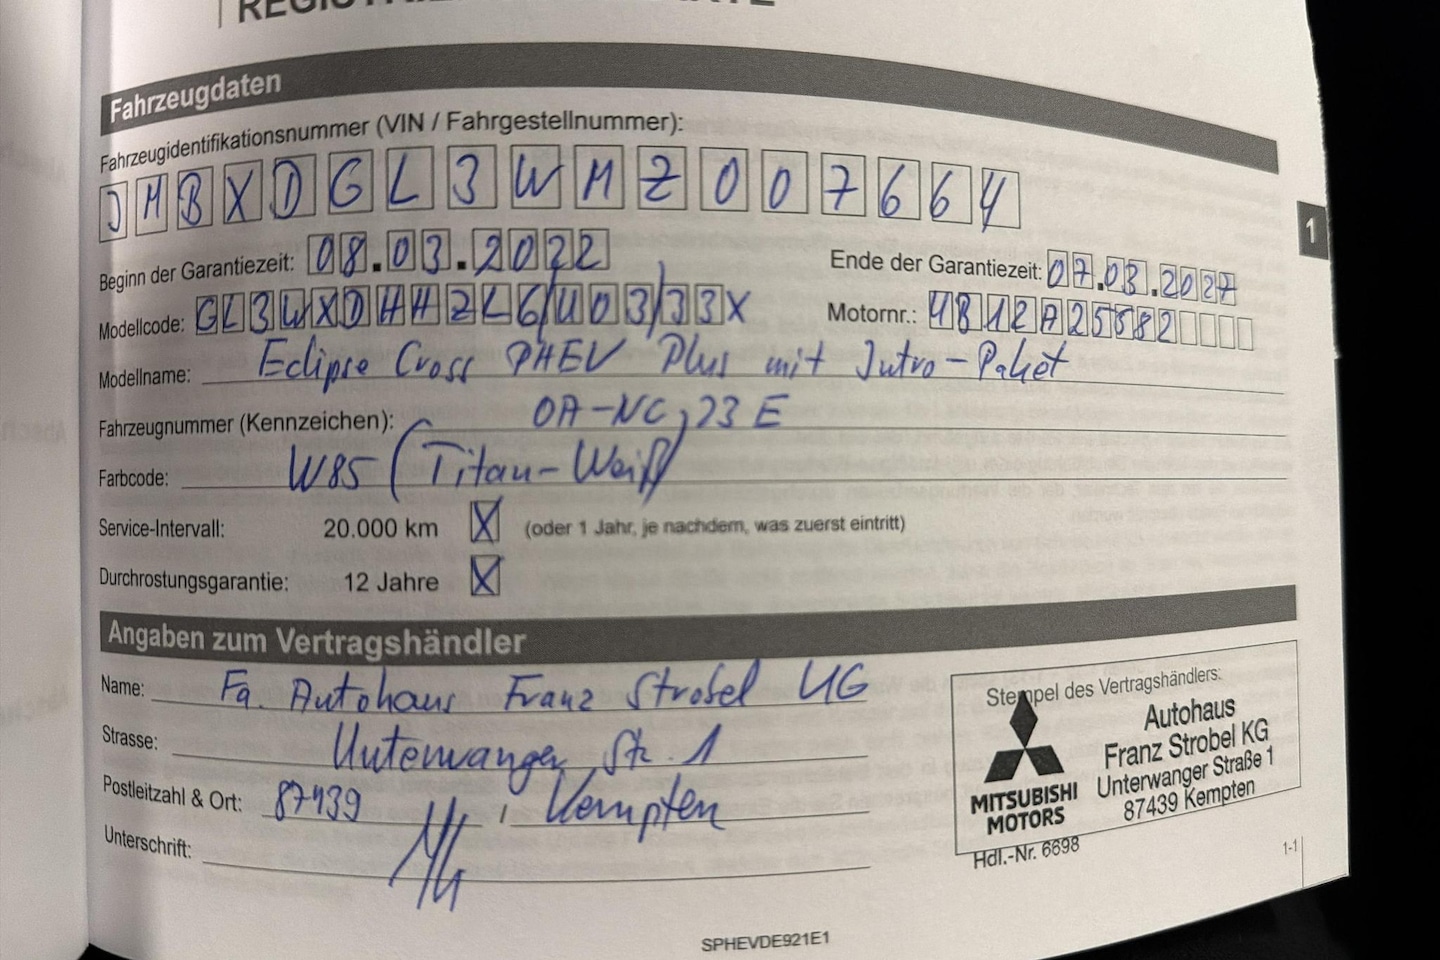 Fahrzeugdaten
Fahrzeugidentifikationsnummer (VIN / Fahrgestellnummer):
JMBXDGL3WMZ007664
Beginn der Garantiezeit: 08.03.2022
Ende der Garantiezeit: 07.03.2027
Modellcode: GL3WXDHHZL6/U03/33X
Motornr.: 4B12A25582
Modellname: Eclipse Cross PHEV Plus mit Intro-Paket
Fahrzeugnummer (Kennzeichen): OA-NC 23 E
Farbcode: W85 (Titan-Weiß)
Service-Intervall: 20.000 km X (oder 1 Jahr, je nachdem, was zuerst eintritt)
Durchrostungsgarantie: 12 Jahre X
Angaben zum Vertragshändler
Name: Fa. Autohaus Franz Strobel KG
Strasse: Unterwanger Str. 1
Postleitzahl & Ort: 87439, Kempten
Unterschrift:
Stempel des Vertragshändlers:
MITSUBISHI
MOTORS
Autohaus
Franz Strobel KG
Unterwanger Straße 1
87439 Kempten
Hdl.-Nr. 6698
1
1-1
SPHEVDE921E1